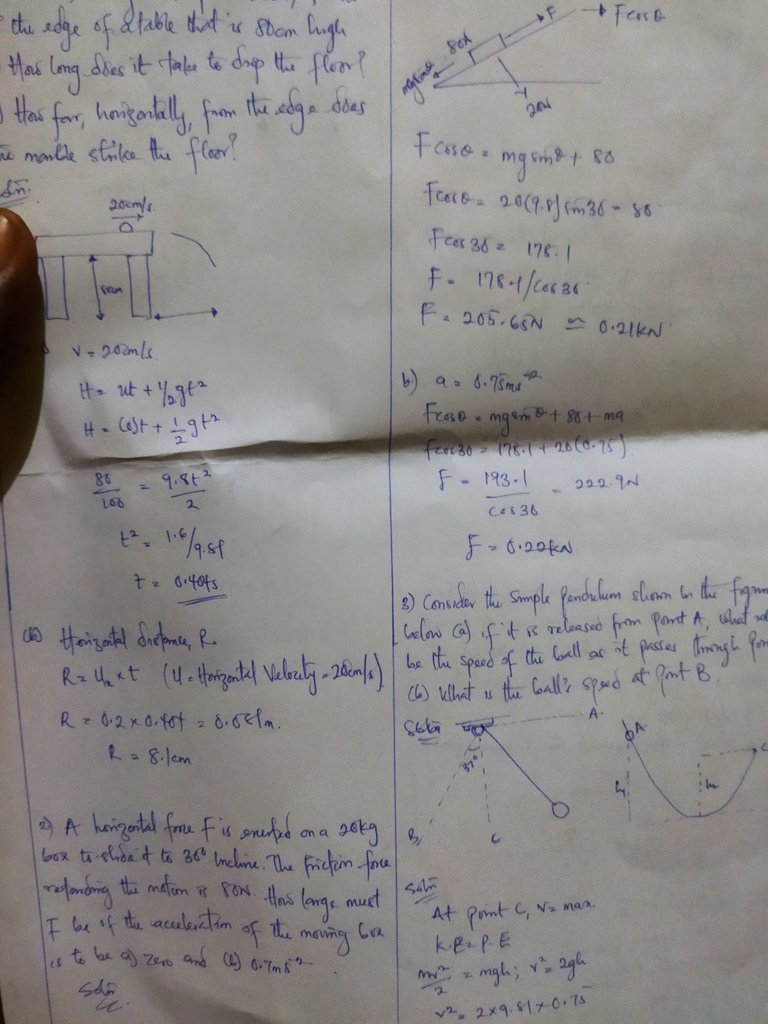 the edge of a table that is 80cm high
How long does it take to drop the floor?
How far, horizontally, from the edge does
the marble strike the floor?
Soln.
20cm/s
80cm
V = 20cm/s
H = ut + 1/2 gt²
H = (0)t + 1/2 gt²
80/100 = 9.8t²/2
t² = 1.6/9.81
t = 0.404s
(b) Horizontal distance, R.
R = Ux × t (U = Horizontal Velocity = 20cm/s)
R = 0.2 × 0.404 = 0.081m.
R = 8.1cm
2) A horizontal force F is exerted on a 20kg
box to slide it to 30° Incline. The friction force
retarding the motion is 80N. How large must
F be if the acceleration of the moving box
is to be a) zero and (b) 0.7ms⁻².
Soln
F
Fcosθ
80N
mgsinθ
20N
Fcosθ = mgsinθ + 80
Fcosθ = 20(9.8)sin30 - 80
Fcos30 = 178.1
F = 178.1/cos30
F = 205.65N ≃ 0.21kN
b) a = 0.75ms⁻²
Fcosθ = mgsinθ + 80 + ma
Fcos30 = 178.1 + 20(0.75)
F = 193.1/cos30 = 222.9N
F = 0.22kN
3) Consider the Simple Pendulum shown in the figure
below (a) if it is released from point A, what will
be the speed of the ball as it passes through
(b) What is the ball's speed at point B.
A.
37°
B
C
A
h
C
Soln
At point C, V = max.
K.E = P.E
mv²/2 = mgh; v² = 2gh
v² = 2×9.81×0.75